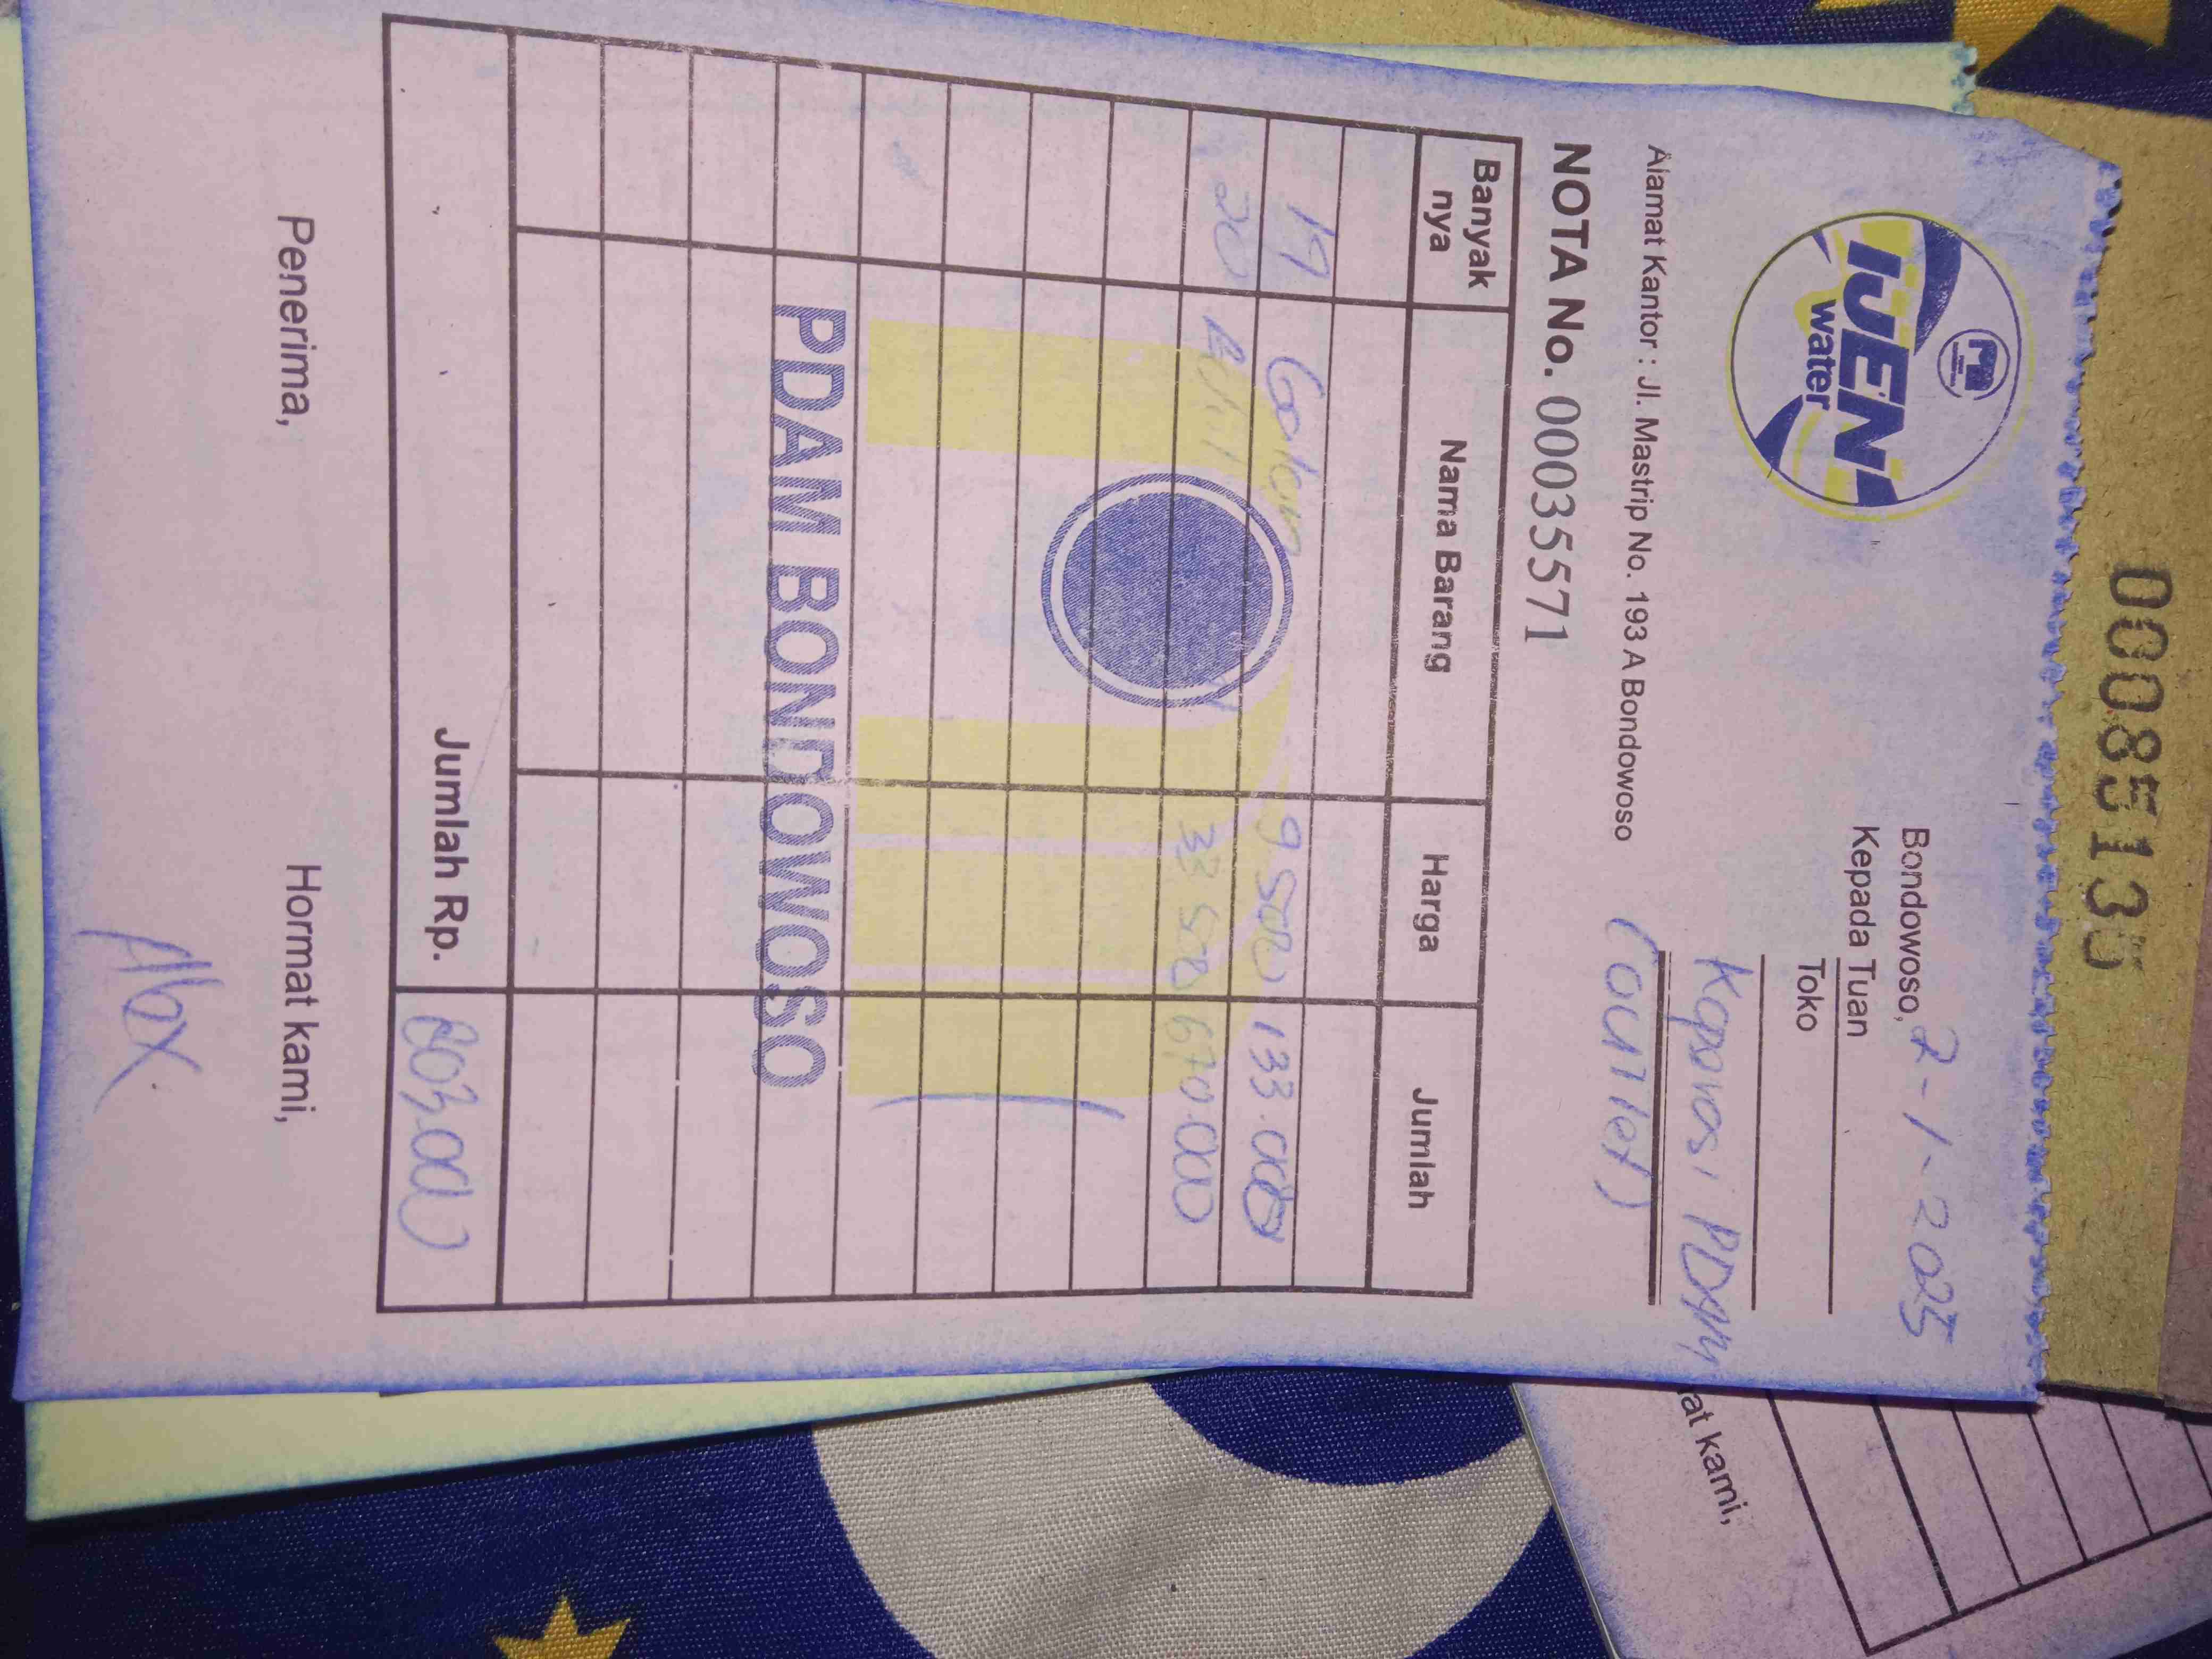 00085135
IJEN
water
Bondowoso, 2-1-2025
Kepada Tuan
Toko
Koperasi PDAM
(outlet)
Alamat Kantor : Jl. Mastrip No. 193 A Bondowoso
NOTA No. 00035571
Banyak nya Nama Barang Harga Jumlah
Galon 9 500 133.000
20 33 500 670.000
PDAM BONDOWOSO
Jumlah Rp. 803.000
Penerima, Hormat kami,
at kami,